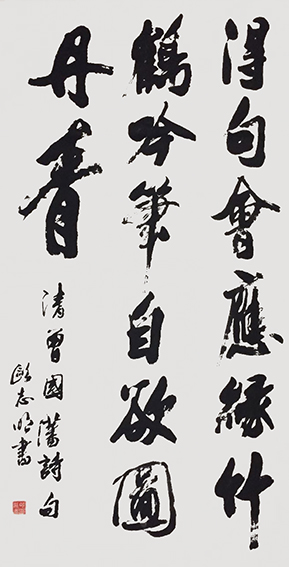 得句會應緣竹
鶴吟筆自欲圖
丹青
清曾國藩詩句
歐志明書